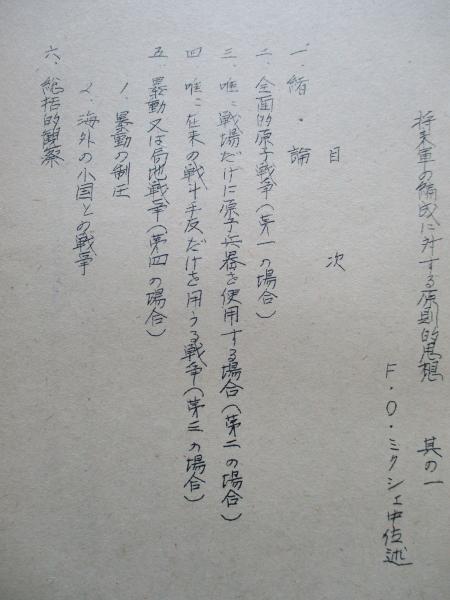 将来軍の編成に対する原則的思想　其の一
F・O・ミクシェ中佐述
目　次
一、緒・論
二、全面的原子戦争(第一の場合)
三、唯に戦場だけに原子兵器を使用する場合(第二の場合)
四、唯に在来の戦斗手段だけを用うる戦争(第三の場合)
五、暴動又は局地戦争(第四の場合)
1、暴動の制圧
2、海外の小国との戦争
六、総括的観察